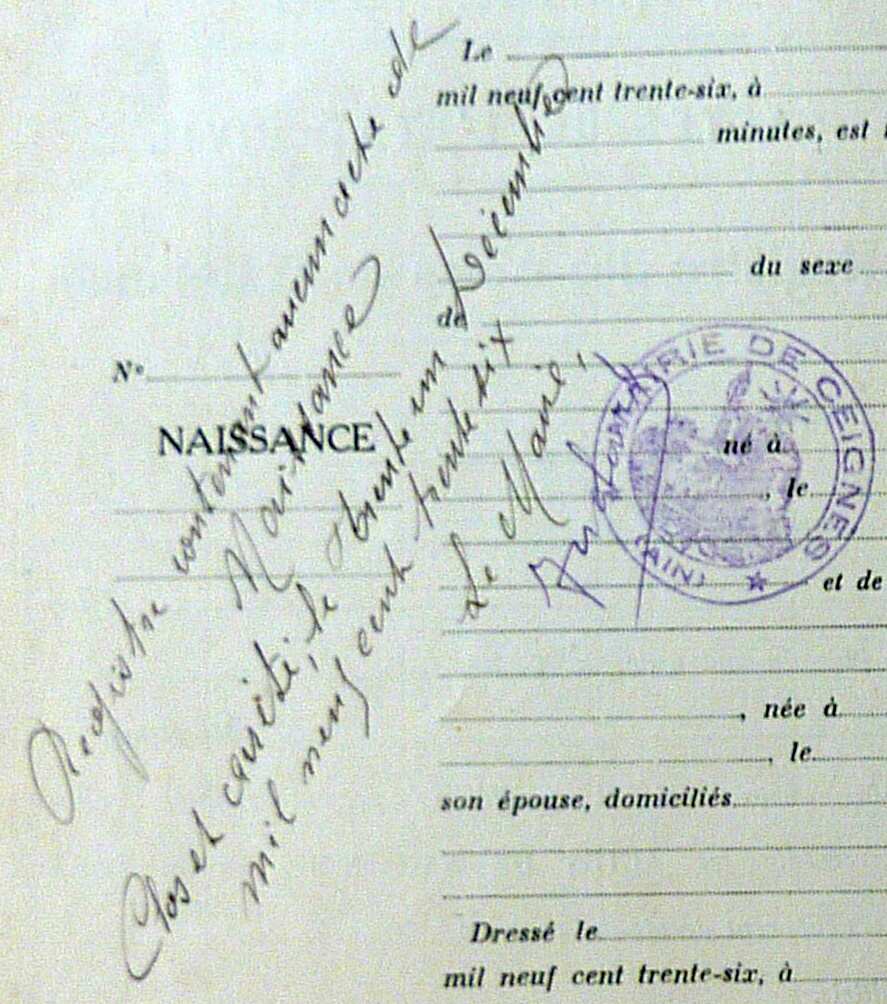 Le
mil neuf cent trente-six, à
minutes, est
du sexe
de
N°
NAISSANCE
né à
, le
et de
, née à
, le
son épouse, domiciliés
Dressé le
mil neuf cent trente-six, à
Registre contenant aucun acte de
Naissance
Clos et arrêté, le trente un Décembre
mil neuf cent trente six
Le Maire,
MAIRIE DE CEIGNES
(AIN)